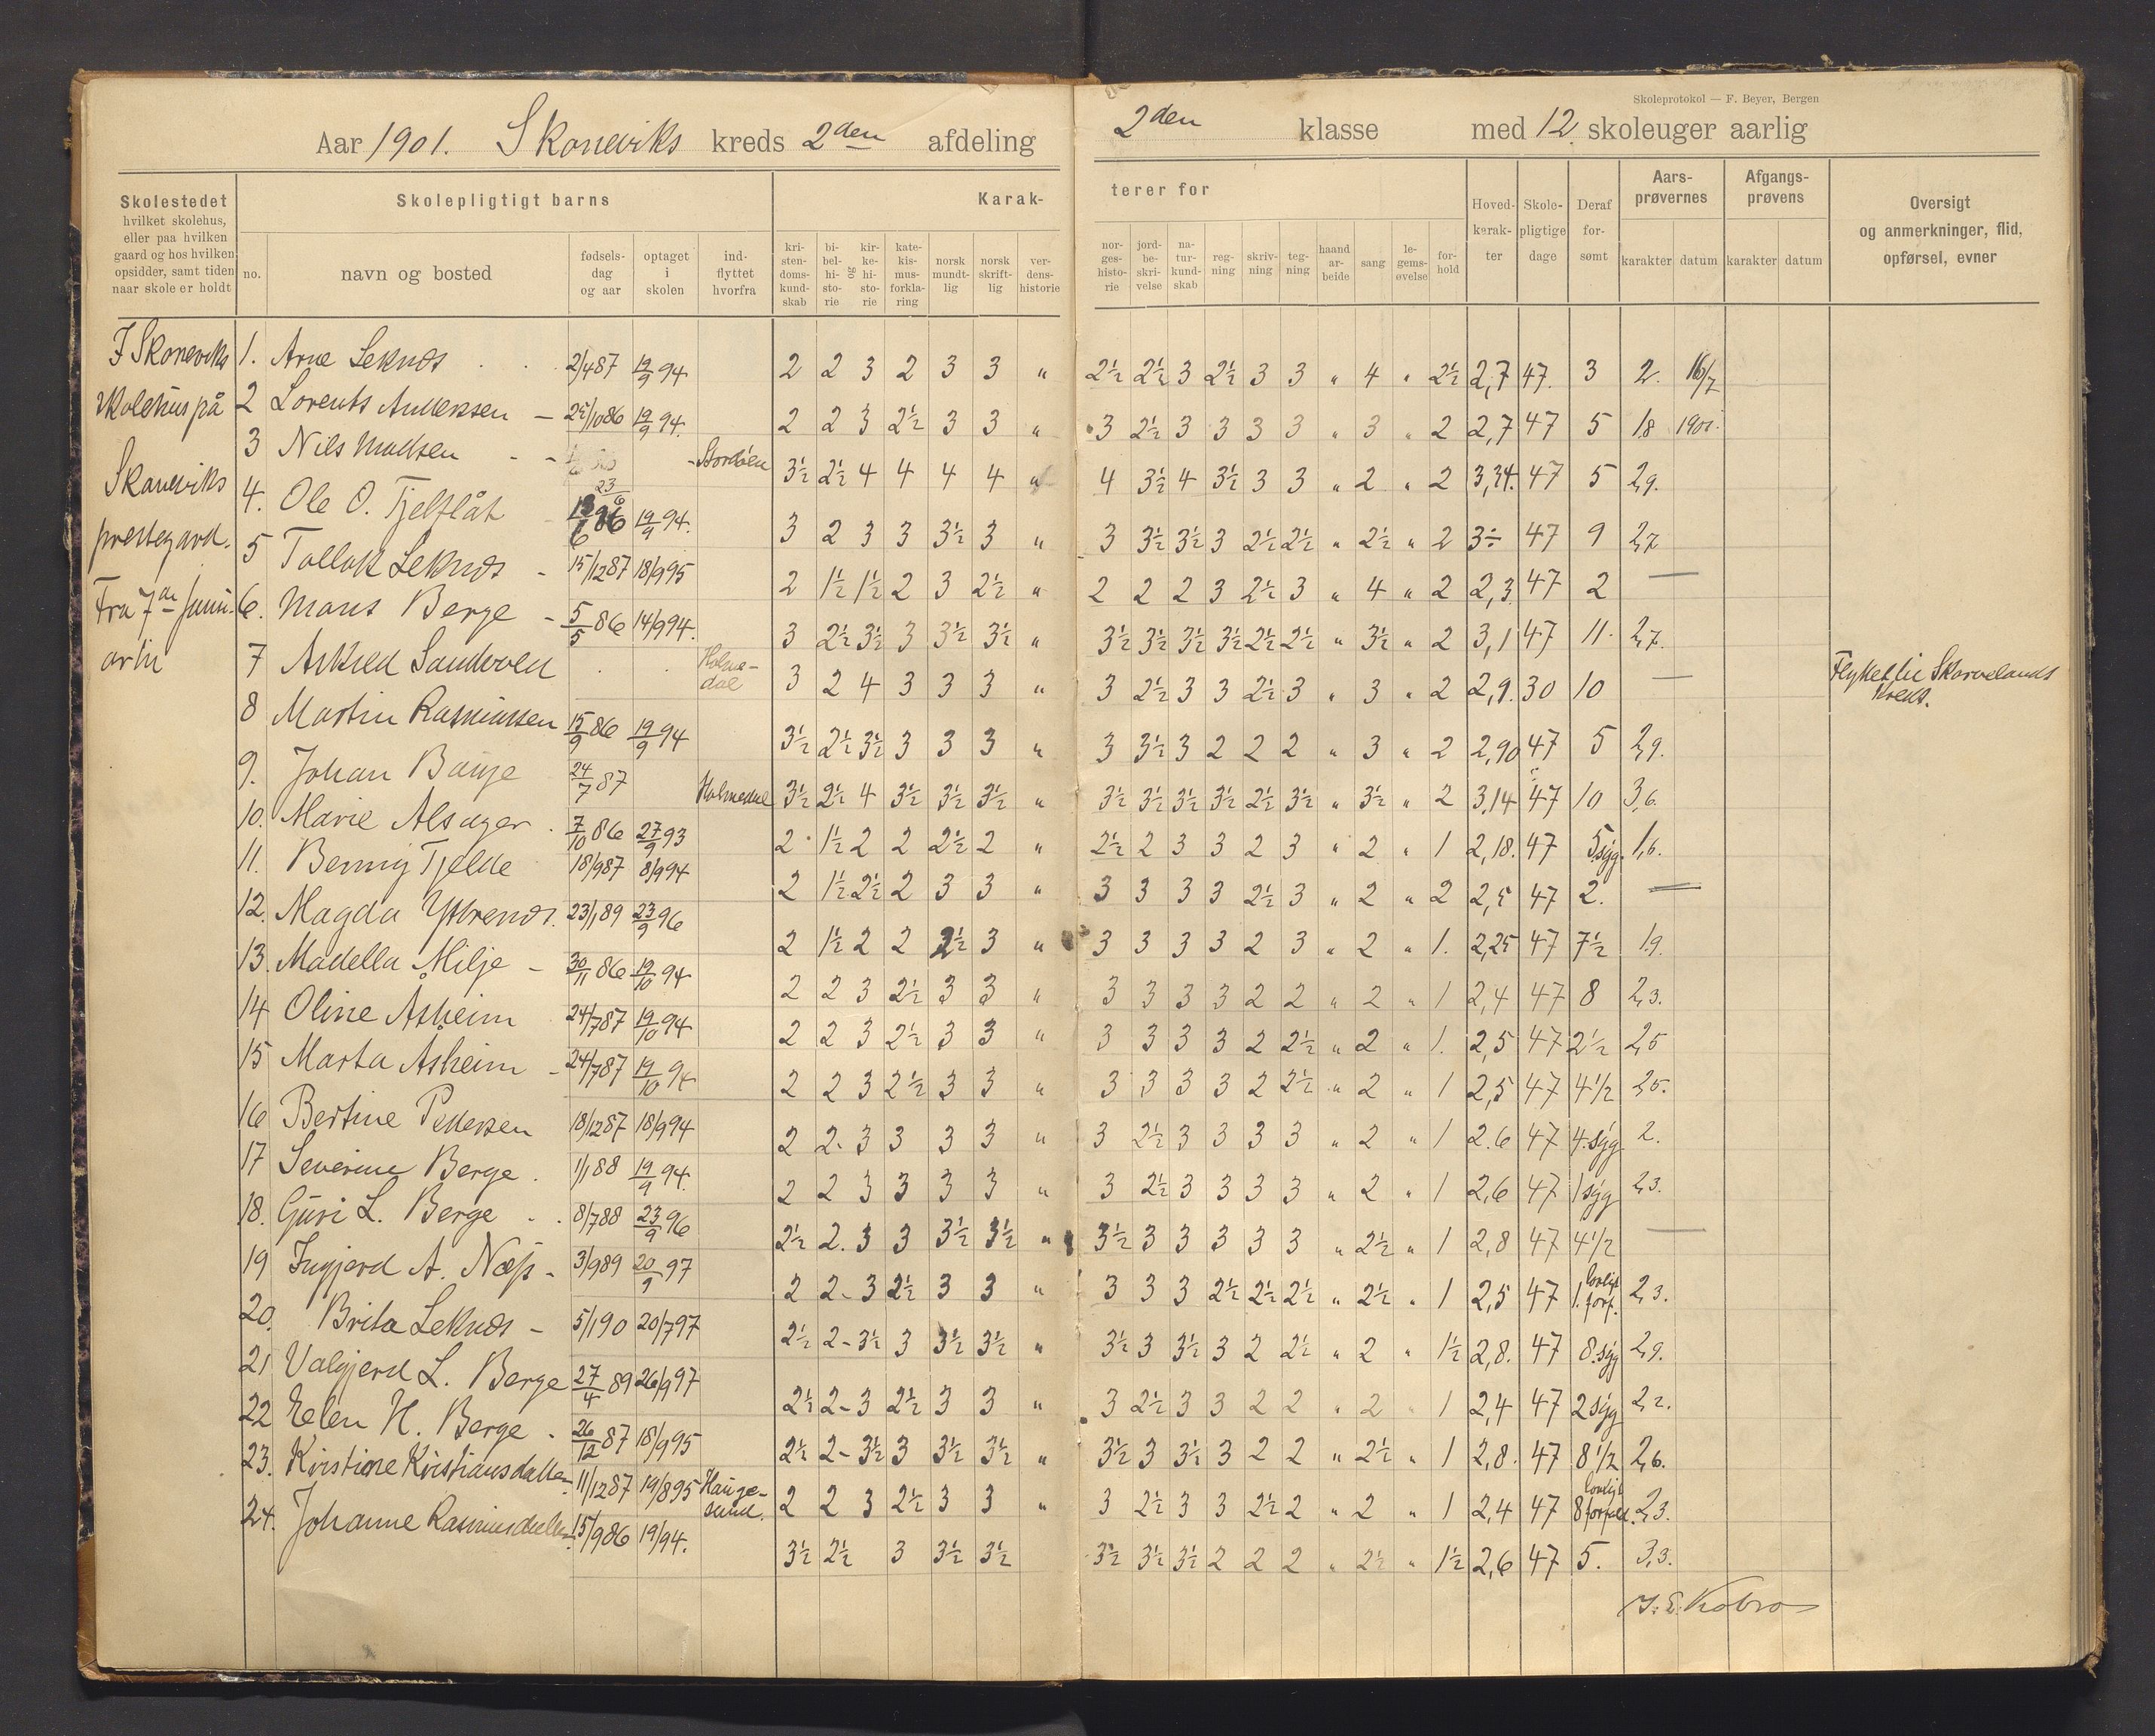 Skoleprotokol — F. Beyer, Bergen
Aar 1901. Skoneviks kreds 2den afdeling 2den klasse med 12 skoleuger aarlig
Skolestedet
hvilket skolehus,
eller paa hvilken
gaard og hos hvilken
opsidder, samt tiden
naar skole er holdt
Skolepligtigt barns
no.
navn og bosted
fødsels-
dag
og aar
optaget
i
skolen
ind-
flyttet
hvorfra
Karak-
kri-
sten-
doms-
kund-
skab
bi-
bel-
hi-
sto-
rie
og
kir-
ke-
hi-
sto-
rie
kate-
kis-
mus-
forkla-
ring
norsk
mundt-
lig
norsk
skrift-
lig
ver-
dens-
historie
terer for
nor-
ges-
histo-
rie
jord-
be-
skri-
velse
na-
tur-
kund-
skab
reg-
ning
skriv-
ning
teg-
ning
haand
ar-
beide
sang
le-
gems-
øvelse
for-
hold
Hoved-
karak-
ter
Skole-
pligtige
dage
Deraf
for-
sømt
Aars-
prøvernes
karakter datum
Afgangs-
prøvens
karakter datum
Oversigt
og anmerkninger, flid,
opførsel, evner
I Skoneviks
skolehus på
Skoneviks
prestegard.
Fra 7de Juni
1. Arne Leknes 2/4 87 19/9 94 2 2 3 2 3 3 " 2½ 2½ 3 2½ 3 3 " 4 " 2½ 2,7 47. 3 2. 16/7
2 Lorents Andersen 25/10 86 19/9 94. 2 2 3 2½ 3 3 " 3 2½ 3 3 3 3 " 3 " 2 2,7 47 5 1.8 1901.
3 Nils Madsen Stordöen 3½ 2½ 4 4 4 4 " 4 3½ 4 3½ 3 3 " 2 " 2 3,34. 47 5 2,9.
4. Ole O. Tjeltlåt 23/6 86 19/9 94. 3 2 3 3 3½ 3 " 3 3½ 3½ 3 2½ 2½ " 2½ " 2 3÷ 47 9 2,7
5 Tollak Leknes 15/12 87 18/9 95 2 1½ 1½ 2 3 2½ " 2 2 2 3 2½ 3 " 4 " 2 2,3 47 2 —
6. Mons Berge 5/5 86 14/9 94. 3 2½ 3½ 3 3½ 3½ " 3½ 3½ 3½ 3½ 2½ 2½ " 3½ " 2 3,1 47 11. 2,7.
7 Askild Sandvoll Holme-
dal 3 2 4 3 3 3 " 3 2½ 3 3 2½ 3 " 3 " 2 2,9. 30 10 — Flyttet til Skorvelands
Kreds.
8 Martin Rasmussen 15/9 86 19/9 94 3½ 2½ 3½ 3 3 3 " 3 3½ 3 2 2 2 " 3 " 2 2,90 47 5 2,9.
9. Johan Bauge 24/7 87 Holmedal 3½ 2½ 4 3½ 3½ 3½ " 3½ 3½ 3½ 3½ 2½ 3½ " 3½ " 2 3,14 47 10 3,6.
10. Marie Alsager 7/10 86 27/9 93 2 1½ 2 2 2½ 2 " 2½ 2 3 3 2 3 " 2 " 1 2,18. 47 5.syg. 1,6.
11. Benny Tjelde 18/9 87 8/9 94 2 1½ 2½ 2 3 3 " 3 3 3 3 2½ 3 " 2 " 2 2,5 47 2. —
12. Magda Ystrenes. 23/1 89 23/9 96 2 1½ 2 2 2½ 3 " 3 3 3 3 2 3 " 2 " 1. 2,25 47 7½ 1.9.
13. Madella Milje 30/11 86 19/10 94 2 2 3 2½ 3 3 " 3 3 3 3 2 2 " 2 " 1 2,4 47 8 2,3.
14 Oline Åsheim 24/7 87 19/10 94 2 2 3 2½ 3 3 " 3 3 3 3 2 2½ " 2 " 1. 2,5 47 2½ 2,5
15 Marta Åsheim 24/7 87 19/10 94 2 2 3 2½ 3 3 " 3 3 3 3 2 2½ " 2 " 1 2,5 47 4½ 2,5.
16 Bertine Pedersen 18/12 87 18/9 94 2 2. 3 3 3 3 " 3 2½ 3 3 3 3 " 2 " 1 2.6 47 4.syg 2.
17 Severine Berge 1/1 88 19/9 94. 2 2 3 3 3 3 " 3 2½ 3 3 3 3 " 2 " 1 2,6 47 1 syg 2,3.
18. Guri L. Berge 8/7 88 23/9 96 2½ 2. 3 3 3½ 3½ " 3½ 3 3 3 3 3 " 2½ " 1 2,8 47 4½ —
19 Ingjerd A. Næss 3/9 89 20/9 97 2 2- 3 2½ 3 3 " 3 3 3 2½ 2½ 2½ " 2½ " 1 2,5 47 1. lovligt
forf. 2,3.
20. Brita Leknes 5/1 90 20/7 97 2½ 2- 3½ 3 3½ 3½ " 3½ 3 3½ 3 2 2½ " 2 " 1½ 2,8. 47 8.syg 2,9.
21 Valgjerd L. Berge 27/4 89 26/9 97 2½ 2- 3 2½ 3 3 " 3 2½ 3 3 2 2 " 2 " 1 2,4 47 2 syg 2,2.
22 Elen H. Berge 26/12 87 18/9 95 2½ 2- 3½ 3 3½ 3½ " 3½ 3 3½ 3 2 2 " 2½ " 1 2,8. 47 8½ 2,6.
23. Kristine Kristiansdatter 11/12 87 19/8 95 Hauge-
sund. 2 2 3 2½ 3 3 " 3 2½ 3 3 2½ 2 " 2 " 1 2,4 47 8 lovligt
forfald. 2,3.
24. Johanne Rasmusdatter 15/9 86 19/94. 3½ 2½ 3 3½ 3½ 3½ 3½ 3½ 2 2 2 " 2½ " 1½ 2,6 47 5. 3,3.